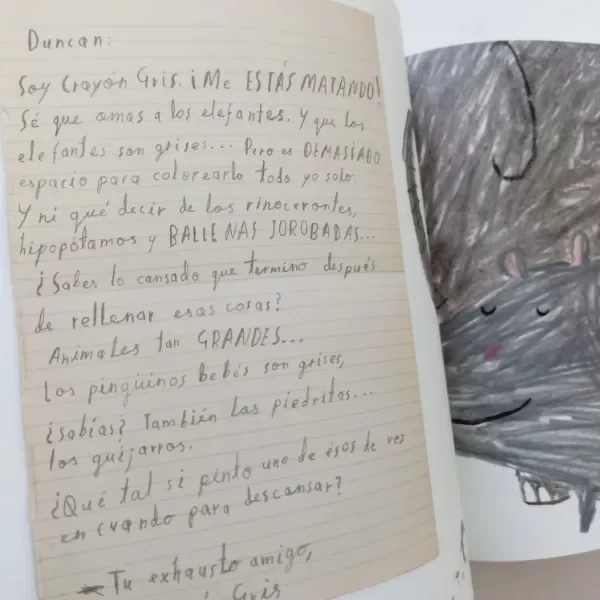 Duncan:
Soy Crayón Gris. ¡Me ESTÁS MATANDO!
Sé que amas a los elefantes. Y que los
elefantes son grises... Pero es DEMASIADO
espacio para colorearlo todo yo solo.
Y ni qué decir de los rinocerontes,
hipopótamos y BALLENAS JOROBADAS...
¿Sabes lo cansado que termino después
de rellenar esas cosas?
Animales tan GRANDES...
Los pingüinos bebés son grises,
¿sabías? También las piedritas...
los guijarros.
¿Qué tal si pinto uno de ésos de vez
en cuando para descansar?
Tu exhausto amigo,
Gris